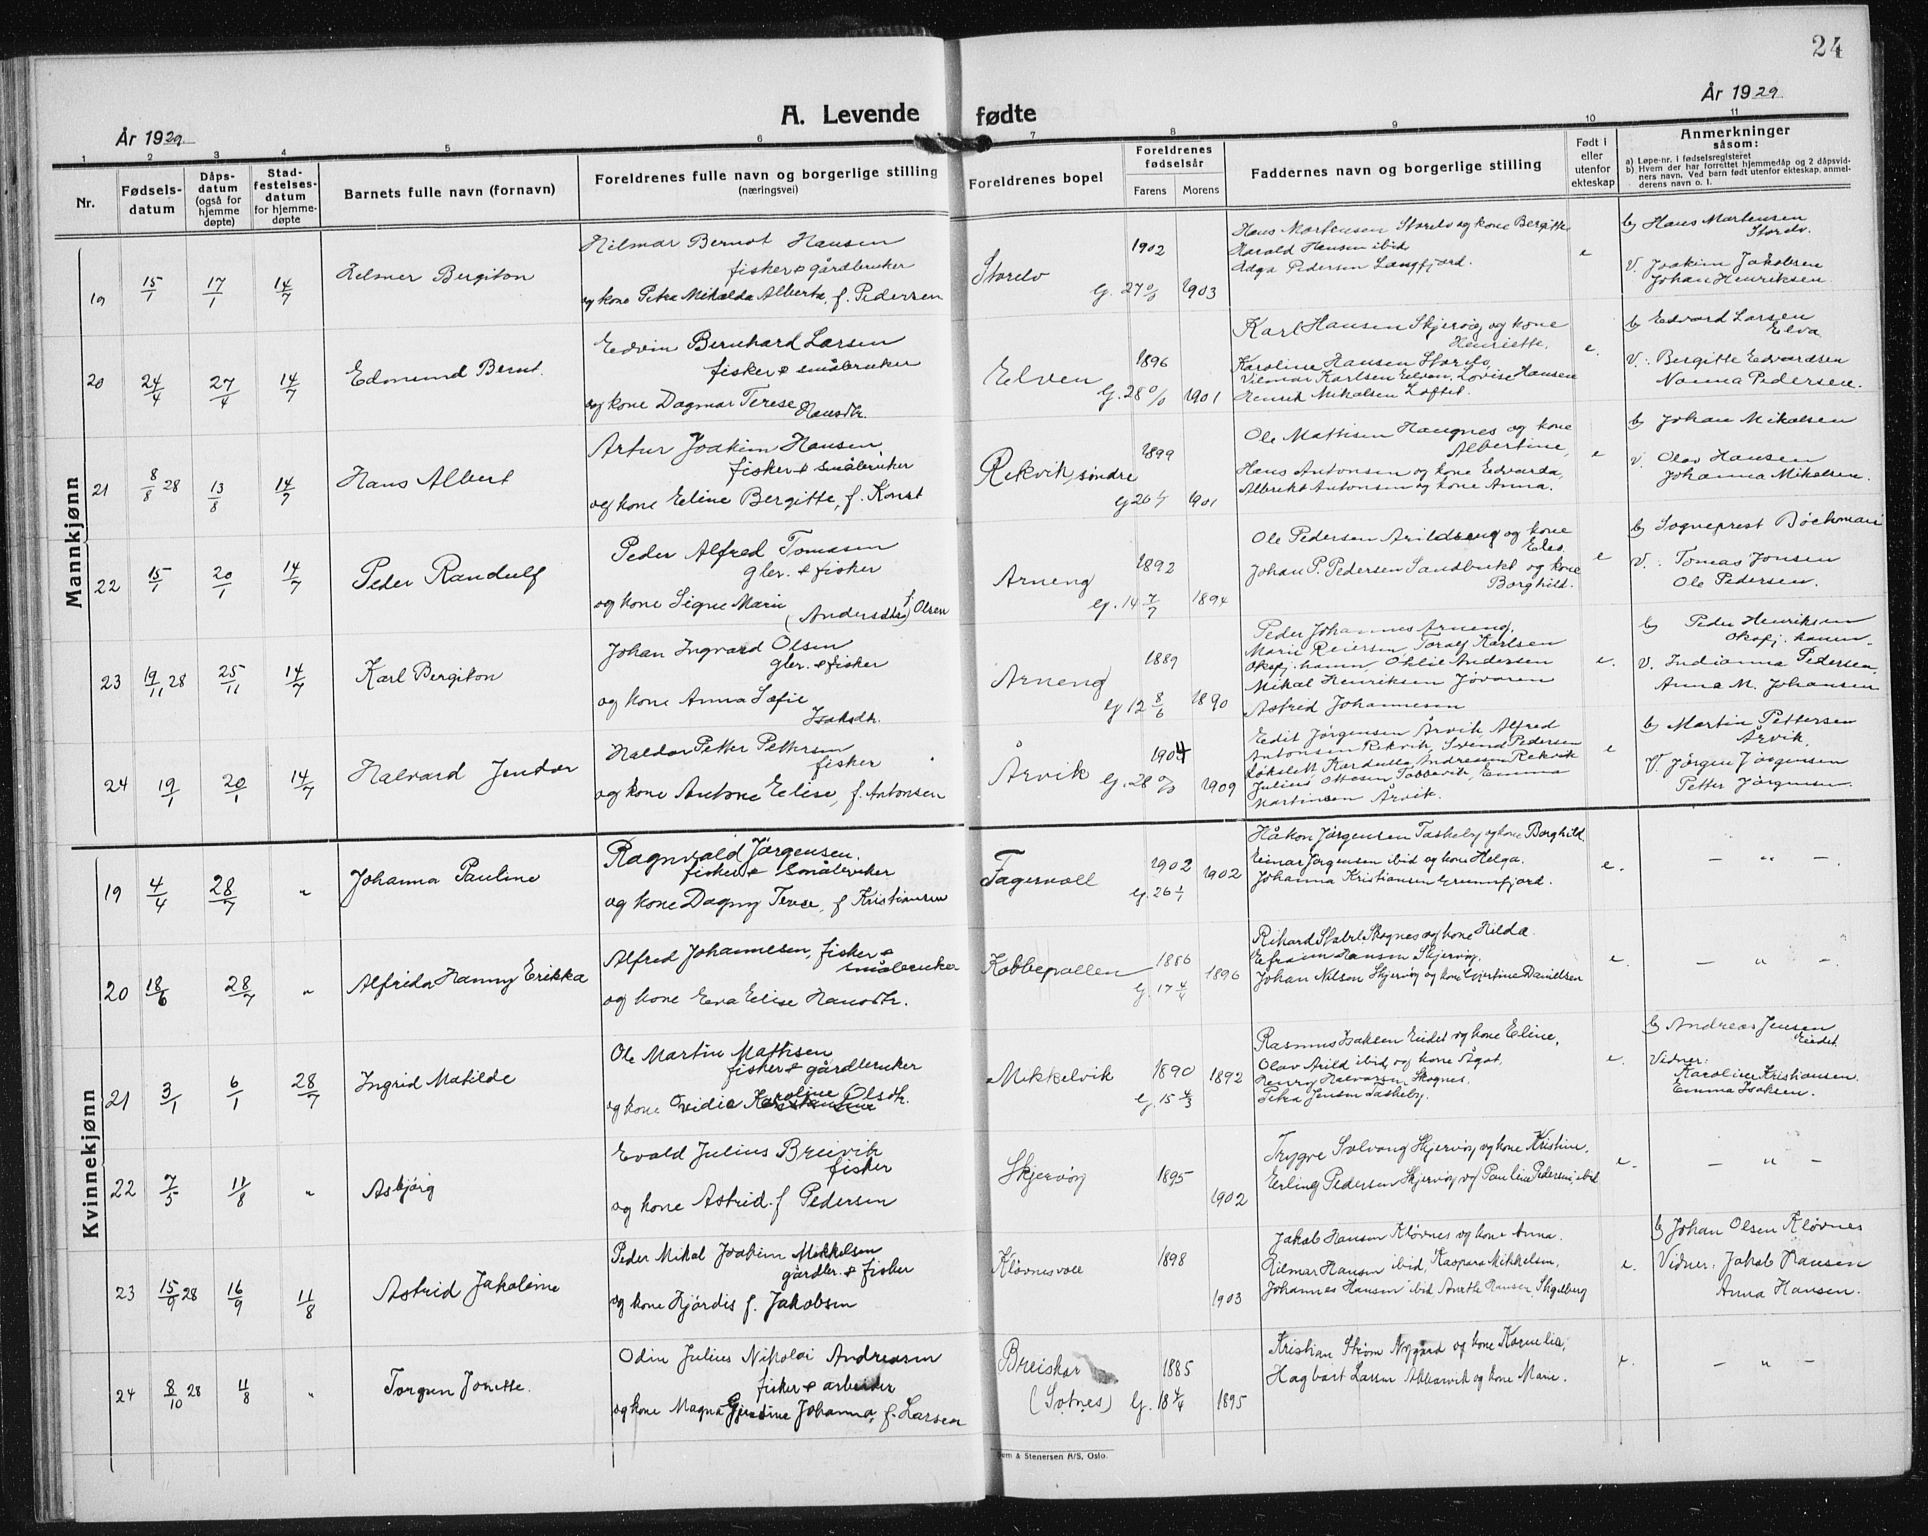 24
År 1929
A. Levende fødte
År 1929
1 2 3 4 5 6 7 8 9 10 11
Nr.
Fødsels-
datum
Dåps-
datum
(også for
hjemme
døpte)
Stad-
festelses-
datum
for hjemme-
døpte
Barnets fulle navn (fornavn)
Foreldrenes fulle navn og borgerlige stilling
(næringsvei)
Foreldrenes bopel
Foreldrenes
fødselsår
Farens Morens
Faddernes navn og borgerlige stilling
Født i
eller
utenfor
ekteskap
Anmerkninger
såsom:
a) Løpe-nr. i fødselsregisteret
b) Hvem der har forrettet hjemmedåp og 2 dåpsvid-
ners navn. Ved barn født utenfor ekteskap, anmel-
derens navn o. l.
Mannkjønn
19 15/1 17/1 14/7 Helmer Bergiton
Hilmar Bernot Hansen
fisker & gårdbruker
og kone Petra Mikalda Alberta, f. Pedersen
Storelv
1902
G. 27 1903
Hans Mortensen Storelv og kone Bergitte
Harald Hansen ibid
Adga Pedersen Langfjord.
e
b Hans Martensen
Storelv.
V. Joakim Jakobsen
Johan Henriksen.
20 24/4 27/4 14/7 Edmund Bernt.
Edvin Bernhard Larsen
fisker & småbruker
og kone Dagmar Terese Hansdtr.
Elven
1896
G. 28 1901
Karl Hansen Skjervøy og kone
Henriette,
Karoline Hansen Storelv,
Vilmar Karlsen Elven, Lovise Hansen
Henrik Mikalsen Loftet.
e.
b Edvard Larsen
Elva
V. Bergitte Edvardsen
Nanna Pedersen.
21 8/8 28 13/8 14/7 Hans Albert
Artur Joakim Hansen,
fisker & småbruker
og kone Eline Bergitte, f. Konst
Rekvik, søndre
1899
G 26 1901
Ole Mattisen Haugnes og kone
Albertine,
Hans Antonsen og kone Edvarda,
Albrikt Antonsen og kone Anna.
e
b Johan Mikalsen
V. Olav Hansen
Johanna Mikalsen.
22 15/1 20/1 14/7 Peder Randulf
Peder Alfred Tomasen
gbr. & fisker
og kone Signe Marie
(Andersdtr) f. Olsen
Arneng
1892
G. 14 7/7 1894
Ole Pedersen Arildseng og kone
Johan P. Pedersen Sandbukt og kone
Borghild.
e
b Sogneprest Bøckman
V. Tomas Jonsen
Ole Pedersen.
23 19/11 28 25/11 14/7 Karl Bergiton
Johan Ingvard Olsen
gbr. & fisker
og kone Anna Sofie
Isaksdtr.
Arneng
1889
G 12 8/6 1890
Peder Johannes Arneng,
Marie Reiersen, Toralf Karlsen
Oksfj. hamn, Ovidie Andersen
Mikal Henriksen Jøvaren
Astrid Johannesen
e.
b Peder Henriksen
Oksfj. hamn
V. Indianna Pedersen
Anna M. Johansen
24 19/1 20/1 14/7 Halvard Jendor
Haldor Petter Pettersen
fisker
og kone Antone Elise, f. Antonsen
Årvik
1904
G. 28 1909
Edit Jørgensen Årvik, Alfred
Antonsen Rekvik, Svend Pedersen
Andreassen Rekvik
Julius Ottesen Tåbbevik, Emma
Martinsen Årvik.
e
b Martin Pettersen
Årvik.
V. Jørgen Jørgensen
Petter Jørgensen.
Kvinnekjønn
19 4/4 28/7 " Johanna Pauline
Ragnvald Jørgensen.
fisker & småbruker
og kone Dagny Terese, f. Kristiansen
Fagervoll
1902 1902
G. 26 1/1
Håkon Jørgensen Taskeby og kone Borghild.
Einar Jørgensen ibid og kone Helga.
Johanna Kristiansen Grunnfjord.
e.
– " –.
20 18/6 28/7 " Alfrida Hanny Erikka
Alfred Johannesen, fisker &
småbruker
og kone Eva Elise Hansdtr.
Kobbepollen
1886 1896
G. 17 4/4
Rikard Stabel Skognes og kone Hilda.
Efraim Hansen Skjervøy.
Johan Nilsen Skjervøy og kone Gjertine Danielsen
e.
– " –.
21 3/1 6/1 28/7 Ingrid Matilde
Ole Martin Mattisen
fisker & gårdbruker
og kone Ovidie Karoline Olsdtr.
Mikkelvik
1890 1892
G. 15 4/3
Rasmus Isaksen Eidet og kone Eline,
Olav Arild ibid og kone Ågot,
Henry Halvorsen Skognes,
Petra Jensen Taskeby.
e.
b Andreas Jensen
Eidet.
Vidner:
Karoline Kristiansen.
Emma Isaksen.
22 7/5 11/8 " Asbjørg
Evald Julius Breivik
fisker
og kone Astrid f. Pedersen
Skjervøy
1895
1902
Trygve Solvang Skjervøy og kone Kristine.
Erling Pedersen Skjervøy og Pauline Pedersen, ibid
e.
– " –
23 15/9 28 16/9 11/8 Astrid Jakobine
Peder Mikal Joakim Mikkelsen
gårdbr. & fisker
og kone Hjørdis f. Jakobsen
Kløvnesvoll
1898
1903
Jakob Hansen Kløvnes og kone Anna.
Hilmar Hansen ibid, Kaspara Mikkelsen,
Johannes Hansen ibid Anette Hansen
e.
b Johan Olsen Kløvnes
Vidner: Jakob Hansen
Anna Hansen.
24 8/10 28 11/8 " Torgun Jonette.
Odin Julius Nikolai Andreasen
fisker & arbeider
og kone Magna Gjertine Johanna, f. Larsen
Breiskar
(Sotnes)
1885
G. 18 4/4 1895
Kristian Strøm Nygård og kone Kornelia,
Hagbart Larsen og kone Marie.
e.
– " –
em & Stenersen A/S, Oslo.